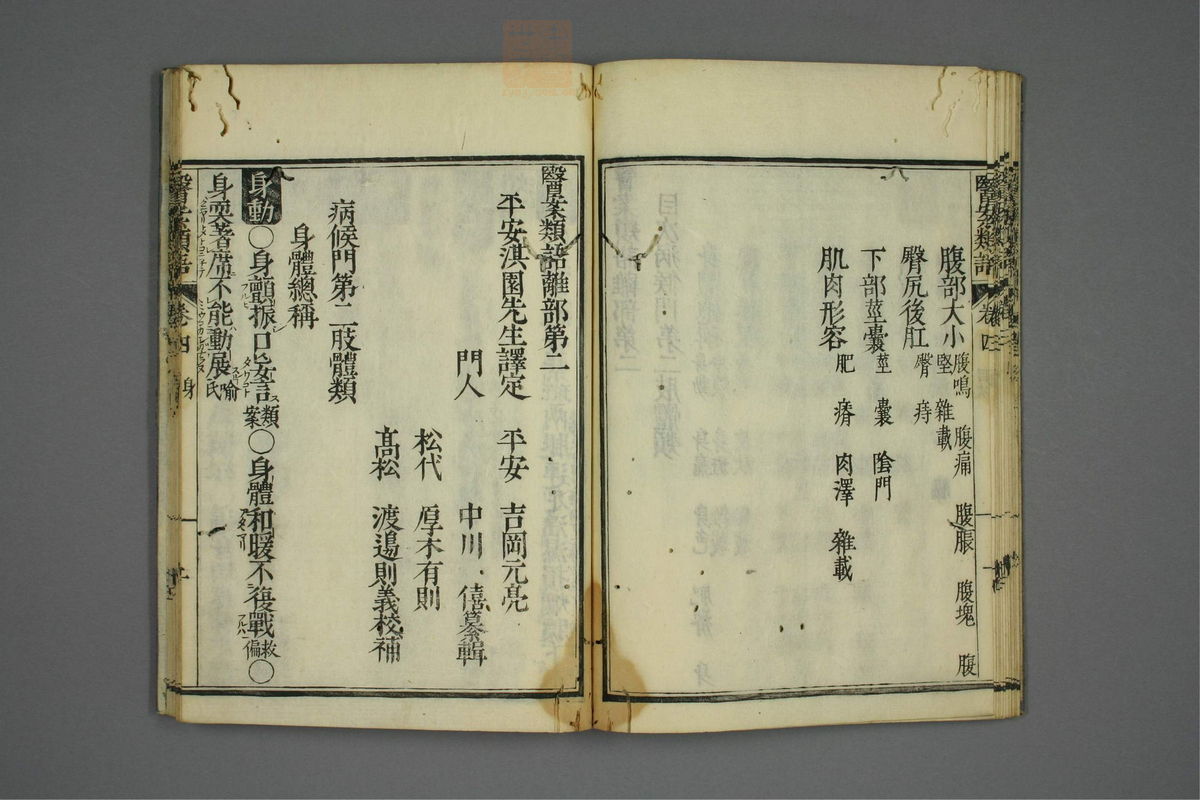 腹部大小 腹鳴 腹痛 腹脹 腹塊 腹
堅 雜載
臀尻後肛 臀 痔
下部莖囊 莖 囊 陰門
肌肉形容 肥 瘠 肉澤 雜載
醫案類語 卷四
醫案類語離部第二
平安淇園先生譯定 平安 吉岡元亮
門人 中川 僖纂輯
松代 厚木有則
髙松 渡邉則義校補
病候門第二肢體類
身體總稱
身動〇身顫振口妄言類案〇身體和暖不復戰救偏〇
身奭著席不能動展喻氏
醫案類語 卷四 身